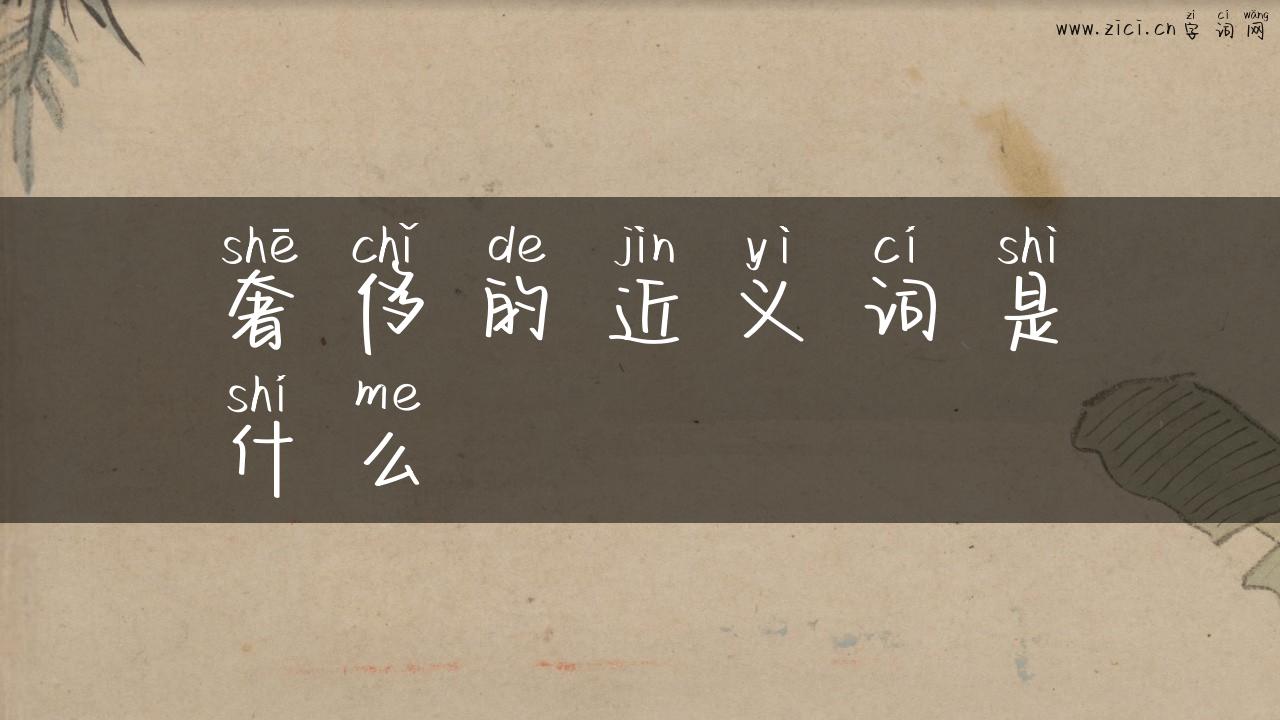 zì cí wǎng
www.zici.cn 字词网
shē chǐ de jìn yì cí shì
奢侈的近义词是
shí me
什么